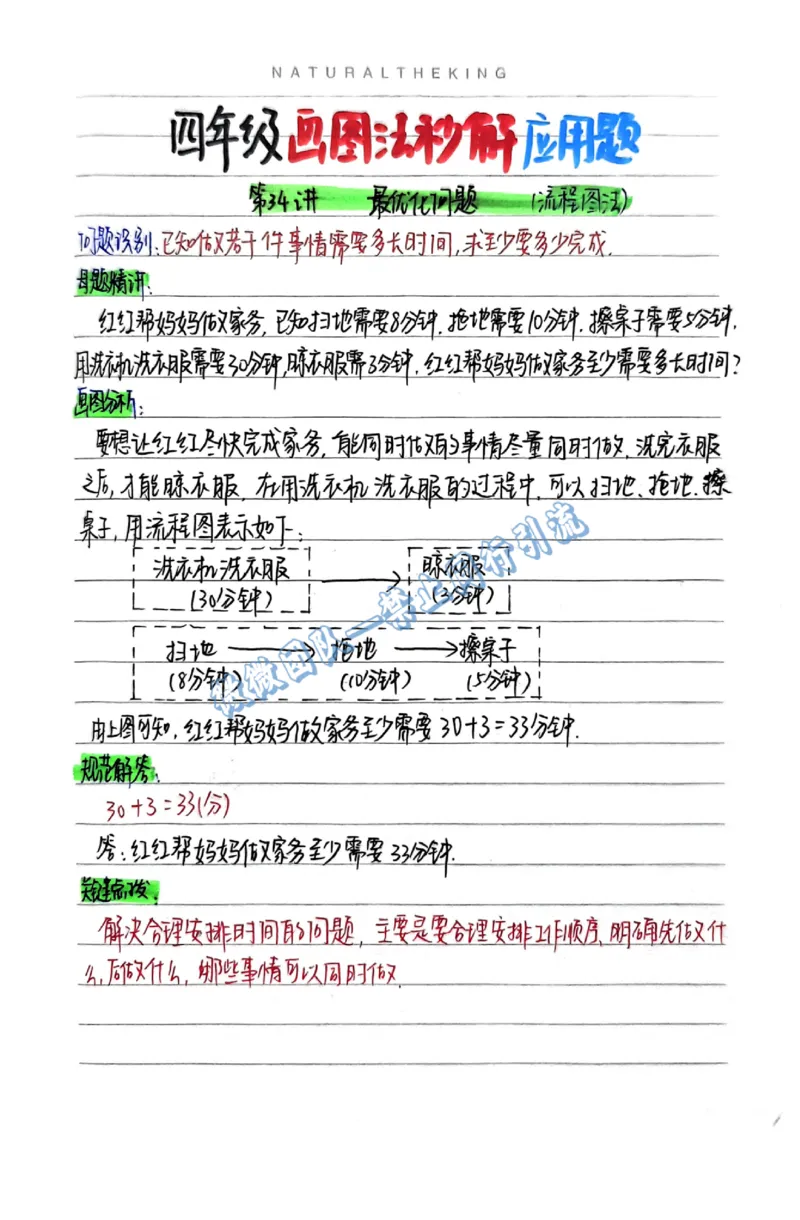 NATURALTHEKING
四年级画图法秒解应用题
第34讲 最优化问题 (流程图法)
问题识别:已知做若干件事情需要多长时间,求至少要多少完成.
母题精讲:
红红帮妈妈做家务,已知扫地需要8分钟.拖地需要10分钟.擦桌子需要5分钟.
用洗衣机洗衣服需要30分钟,晾衣服需3分钟.红红帮妈妈做家务至少需要多长时间?
画图分析:
要想让红红尽快完成家务,能同时做的事情尽量同时做.洗完衣服
之后,才能晾衣服.在用洗衣机洗衣服的过程中.可以扫地、拖地.擦
桌子,用流程图表示如下:
洗衣机洗衣服 晾衣服
(30分钟) (3分钟)
扫地 拖地 擦桌子
(8分钟) (10分钟) (5分钟)
微微团队—禁止同行引流
由上图可知,红红帮妈妈做家务至少需要30+3=33分钟.
规范解答:
30+3=33(分)
答:红红帮妈妈做家务至少需要33分钟.
关键点拨:
解决合理安排时间的问题,主要是要合理安排工作顺序,明确先做什
么,后做什么,哪些事情可以同时做.